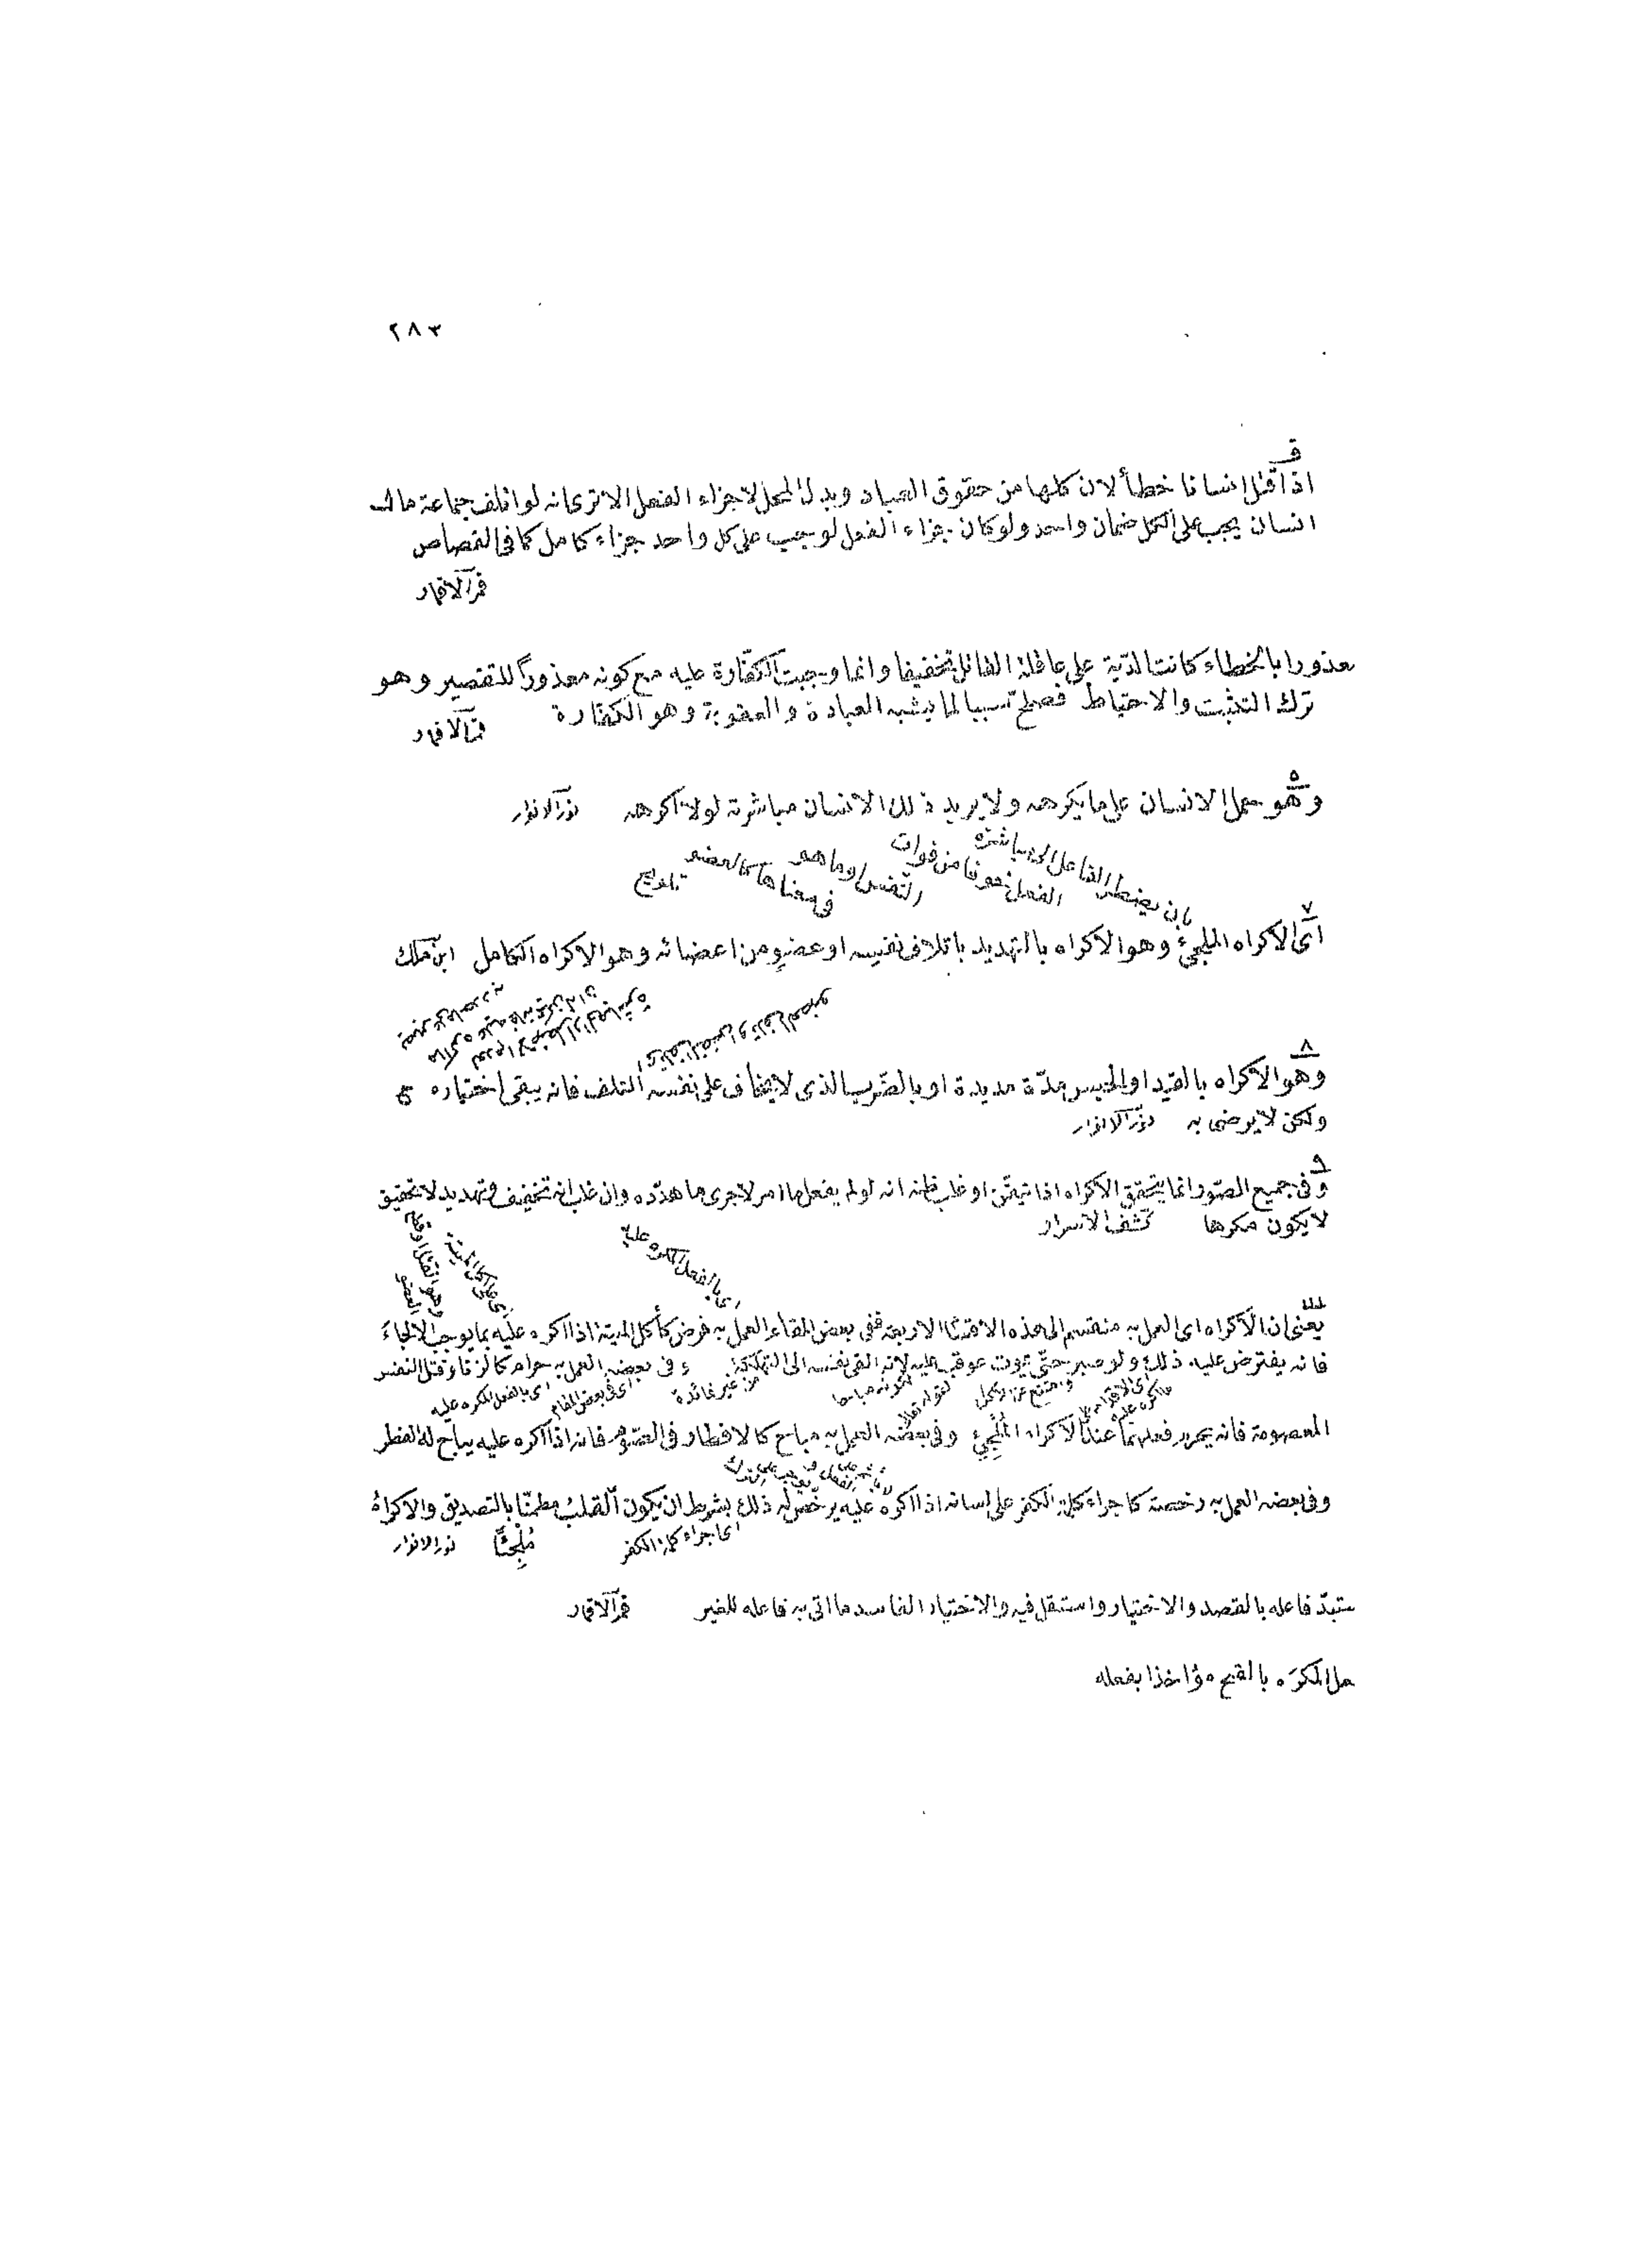 ٢٨٣
ق
اذا قتل انسانا خطأ لان كلها من حقوق العباد وبدل المحل لا جزاء الفعل الا ترى انه لو اتلف جماعة مال
انسان يجب على الكل ضمان واحد ولو كان جزاء الفعل لوجب على كل واحد جزاء كامل كما في القصاص
قمر الاقمار
معذورا بالخطاء كانت الدّية على عاقلة القاتل تخفيفا وانما وجبت الكفّارة عليه مع كونه معذوراً للتقصير وهو
ترك التثبت والاحتياط فصلح سببا لما يشبه العبادة والعقوبة وهو الكفارة قمر الاقمار
٥
وهو حمل الانسان على ما يكرهه ولا يريد ذلك الانسان مباشرته لولا اكرهه نور الانوار
بان يضطر الفاعل الى مباشرة
الفعل خوفا من فوات
النّفس او ما هو
في معناها كالعضو تلويح
٧
اى الاكراه الملجئ وهو الاكراه بالتهديد باتلاف نفسه او عضوٍ من اعضائه وهو الاكراه الكامل ابن ملك
٨
وهو الاكراه بالقيد او الحبس مدّة مديدة او بالضّرب الذى لا يخاف على نفسه التلف فانه يبقى اختياره
ولكن لا يرضى به نور الانوار
٩
وفى جميع الصّور انما يتحقق الاكراه اذا تيقّن او غلب ظنه انه لو لم يفعل ما امر لاجرى ما هدّده وان غلب انه تخفيف وتهديد لا تحقيق
لا يكون مكرها كشف الاسرار
اى بالفعل المكره عليه
يعنى ان الاكراه اى العمل به منقسم الى هذه الاقسام الاربعة ففى بعض المقام العمل به فرض كأكل الميتة اذا اكره عليه بما يوجب الالجاءَ
فانه يفترض عليه ذلك ولو صبر حتّى يموت عوقب عليه لانه القى نفسه الى التهلكة وفى بعضه العمل به حرام كالزنا وقتل النفس
من غير فائدة
اى فى بعض المقام
اى بالفعل المكره عليه
المعصومة فانه يحرم فعلهما عند الاكراه المُلْجِئ وفى بعضه العمل به مباح كالافطار فى الصّوم فانه اذا اكره عليه يباح له الفطر
وفى بعضه العمل به رخصة كاجراء كلمة الكفر على لسانه اذا اكره عليه يرخّص له ذلك بشرط ان يكون القلبُ مطمئنّا بالتصديق والاكراهُ
اى اجراء كلمة الكفر
مُلْجِئًا نور الانوار
ستبدّ فاعله بالقصد والاختيار واستقل فيه والاختيار الفاسد ما اتى به فاعله للغير قمر الاقمار
المكرَه بالقبح مؤاخذا بفعله